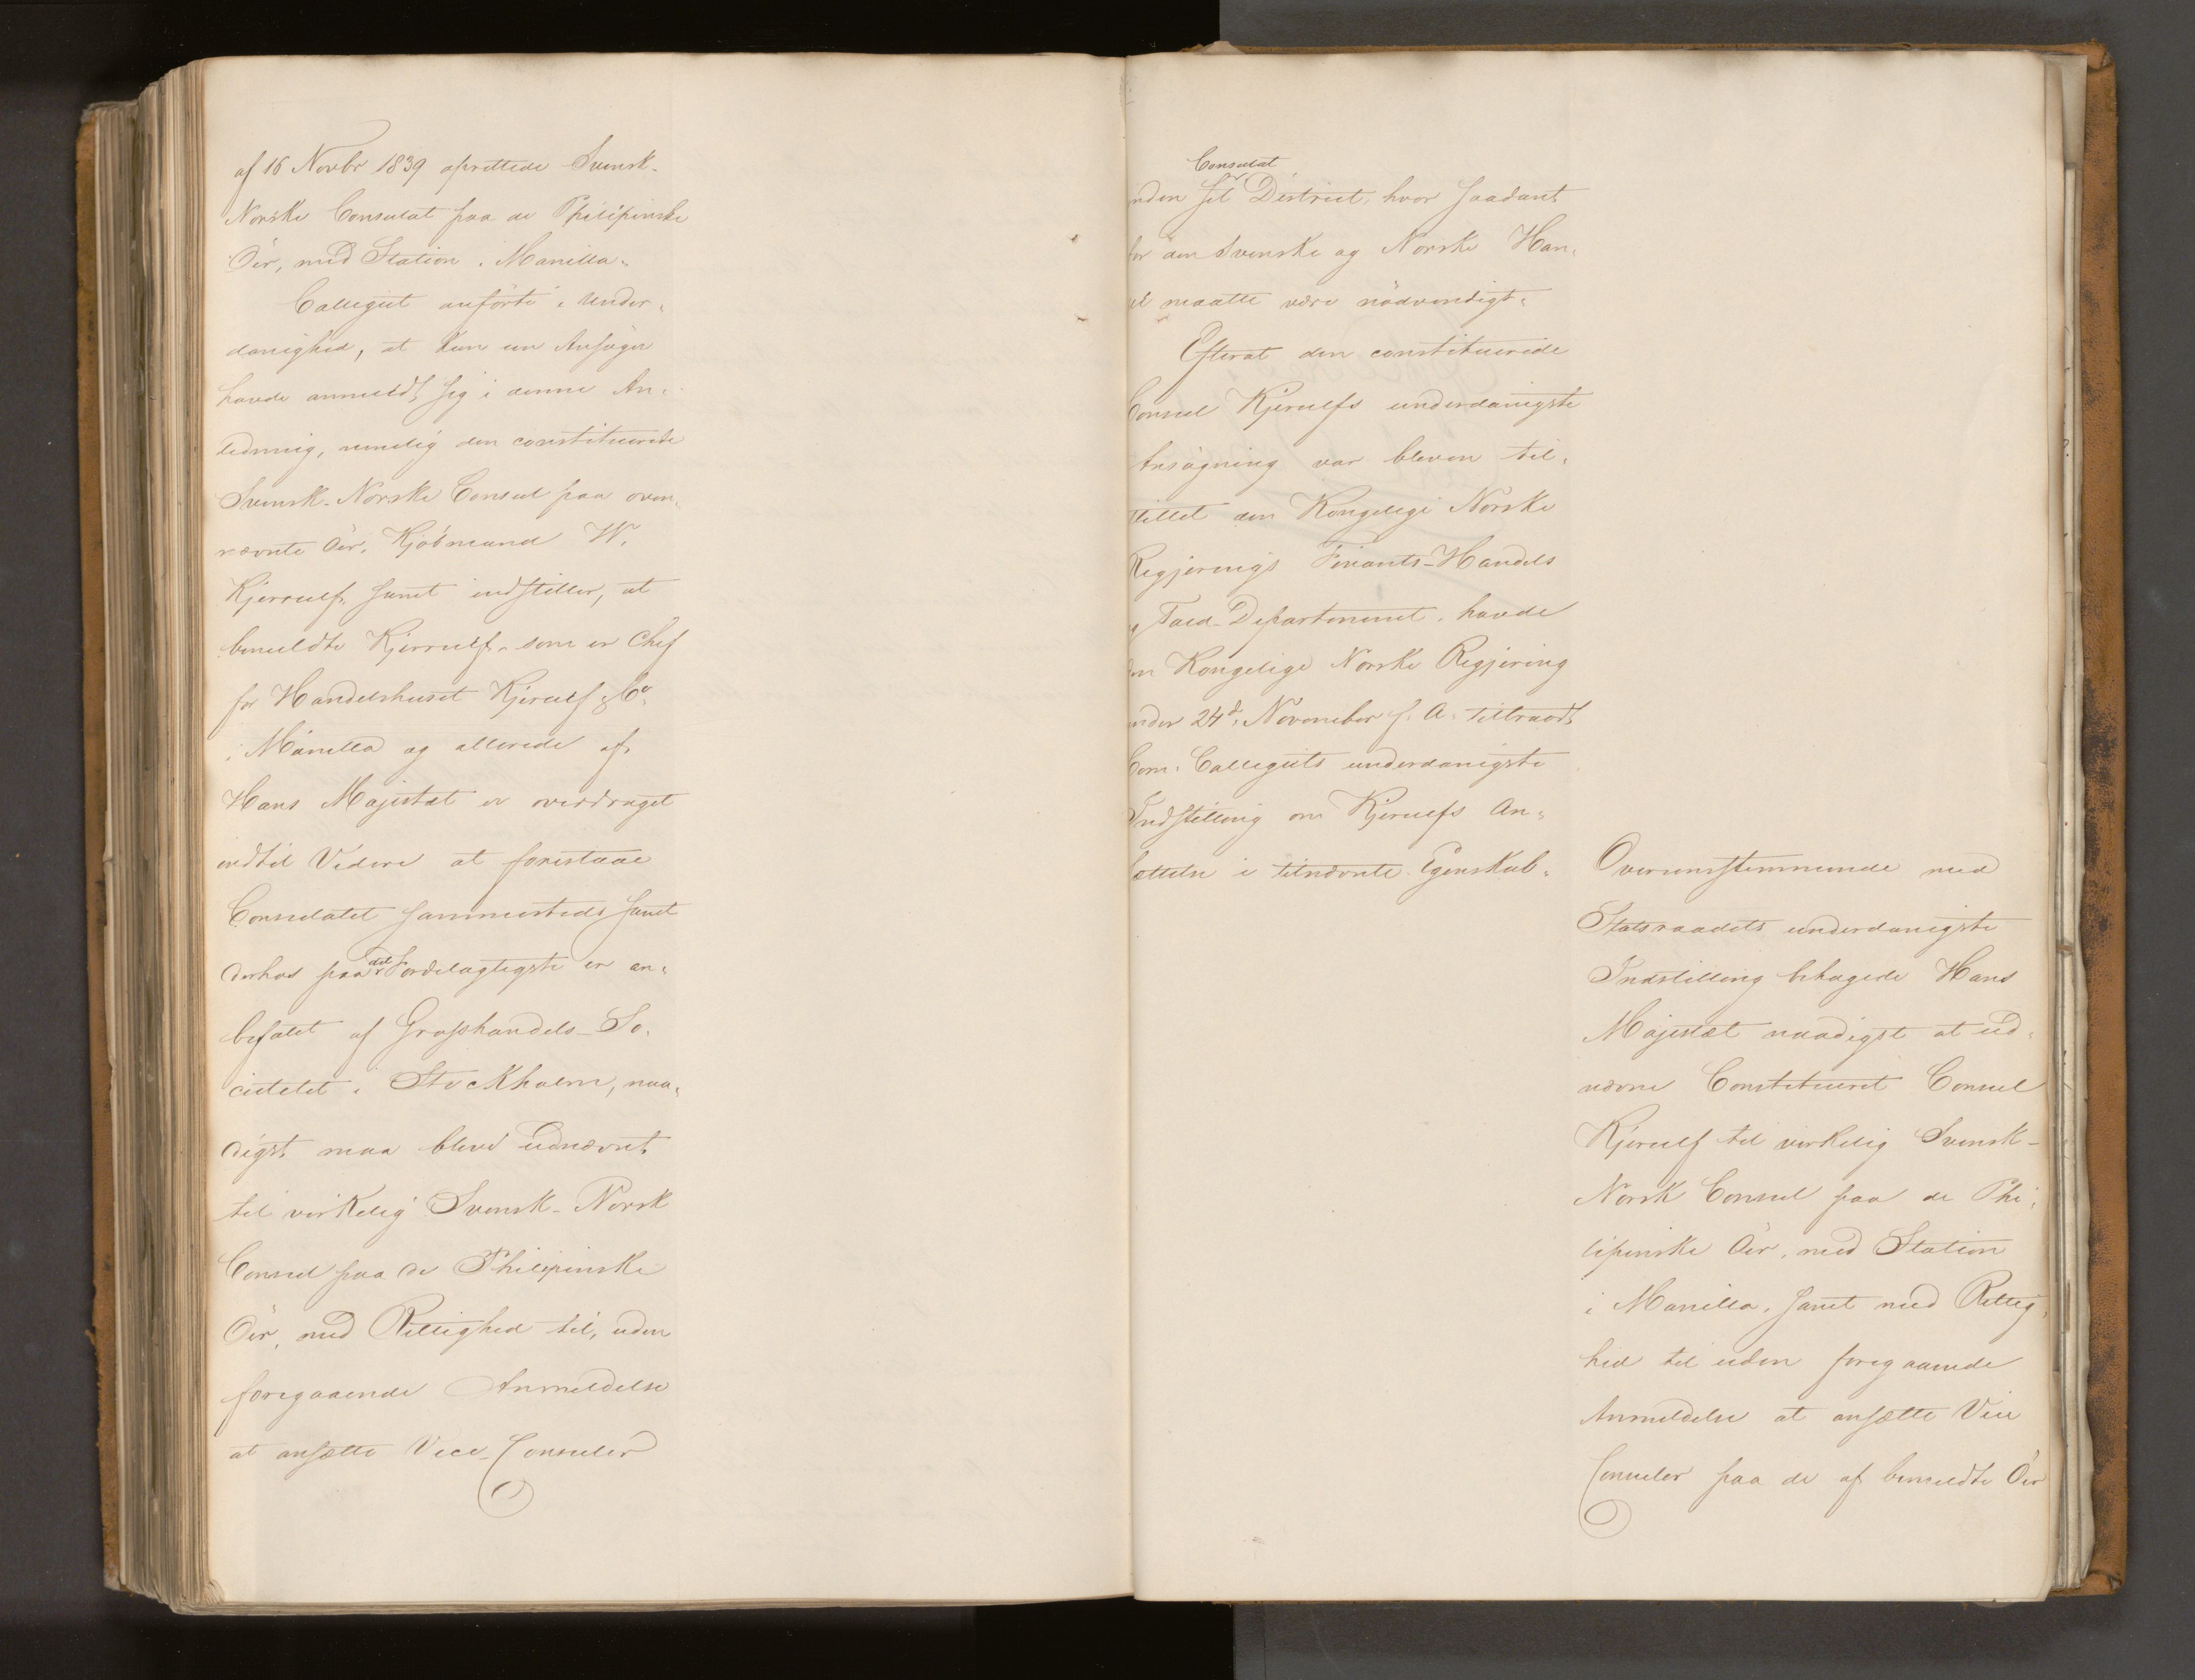 af 16 Novbr 1839 oprettede Svensk-
Norske Consulat paa de Philipinske
Öer, med Station i Manilla.
Collegiet anförte i Under-
danighed, at kun een Ansøger
havde anmeldt sig i denne An-
ledning, nemlig den constituerede
Svensk-Norske Consul paa oven-
nævnte Öer, Kjöbmand W.
Kjerrulf, samt indstiller, at
bemeldte Kjerrulf, som er Chef
for Handelshuset Kjerulf & Co
i Manilla og allerede af
Hans Majestæt er overdraget
indtil Videre at forestaae
Consulatet sammesteds samt
derhos paa det Fordelagtigste er an-
befalet af Grosshandels-So-
cietetet i Stockholm, naa-
digst maa blive udnævnt
til virkelig Svensk-Norsk
Consul paa de Philipinske
Öer, med Rettighed til, uden
foregaaende Anmeldelse
at ansætte Vice-Consuler
Consulat
inden sit District, hvor saadant
for den Svenske og Norske Han-
del maatte være nödvendigt.
Efterat den constituerede
Consul Kjerulfs underdanigste
Ansögning var bleven til-
stillet den Kongelige Norske
Regjerings Finants-Handels
og Told-Departement, havde
den Kongelige Norske Regjering
under 24de November f. A. tiltraadt
Com: Collegiets underdanigste
Indstilling om Kjerulfs An-
sættelse i tilnævnte Egenskab.
Overeensstemmende med
Statsraadets underdanigste
Indstilling behagede Hans
Majestæt naadigst at ud-
nævne Constitueret Consul
Kjerulf til virkelig Svensk-
Norsk Consul paa de Phi-
lipinske Öer, med Station
i Manilla, samt med Rettig-
hed til uden foregaaende
Anmeldelse at ansætte Vice
Consuler paa de af bemeldte Öer